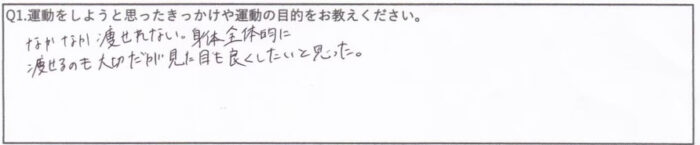 Q1.運動をしようと思ったきっかけや運動の目的をお教えください。
なかなか痩せれない。身体全体的に
痩せるのも大切だが見た目も良くしたいと思った。